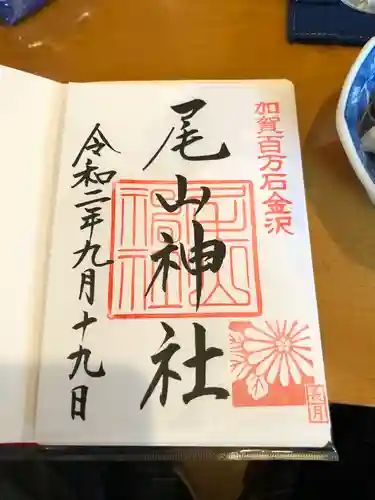 加賀百万石金沢
尾山神社
令和二年九月十九日
長月